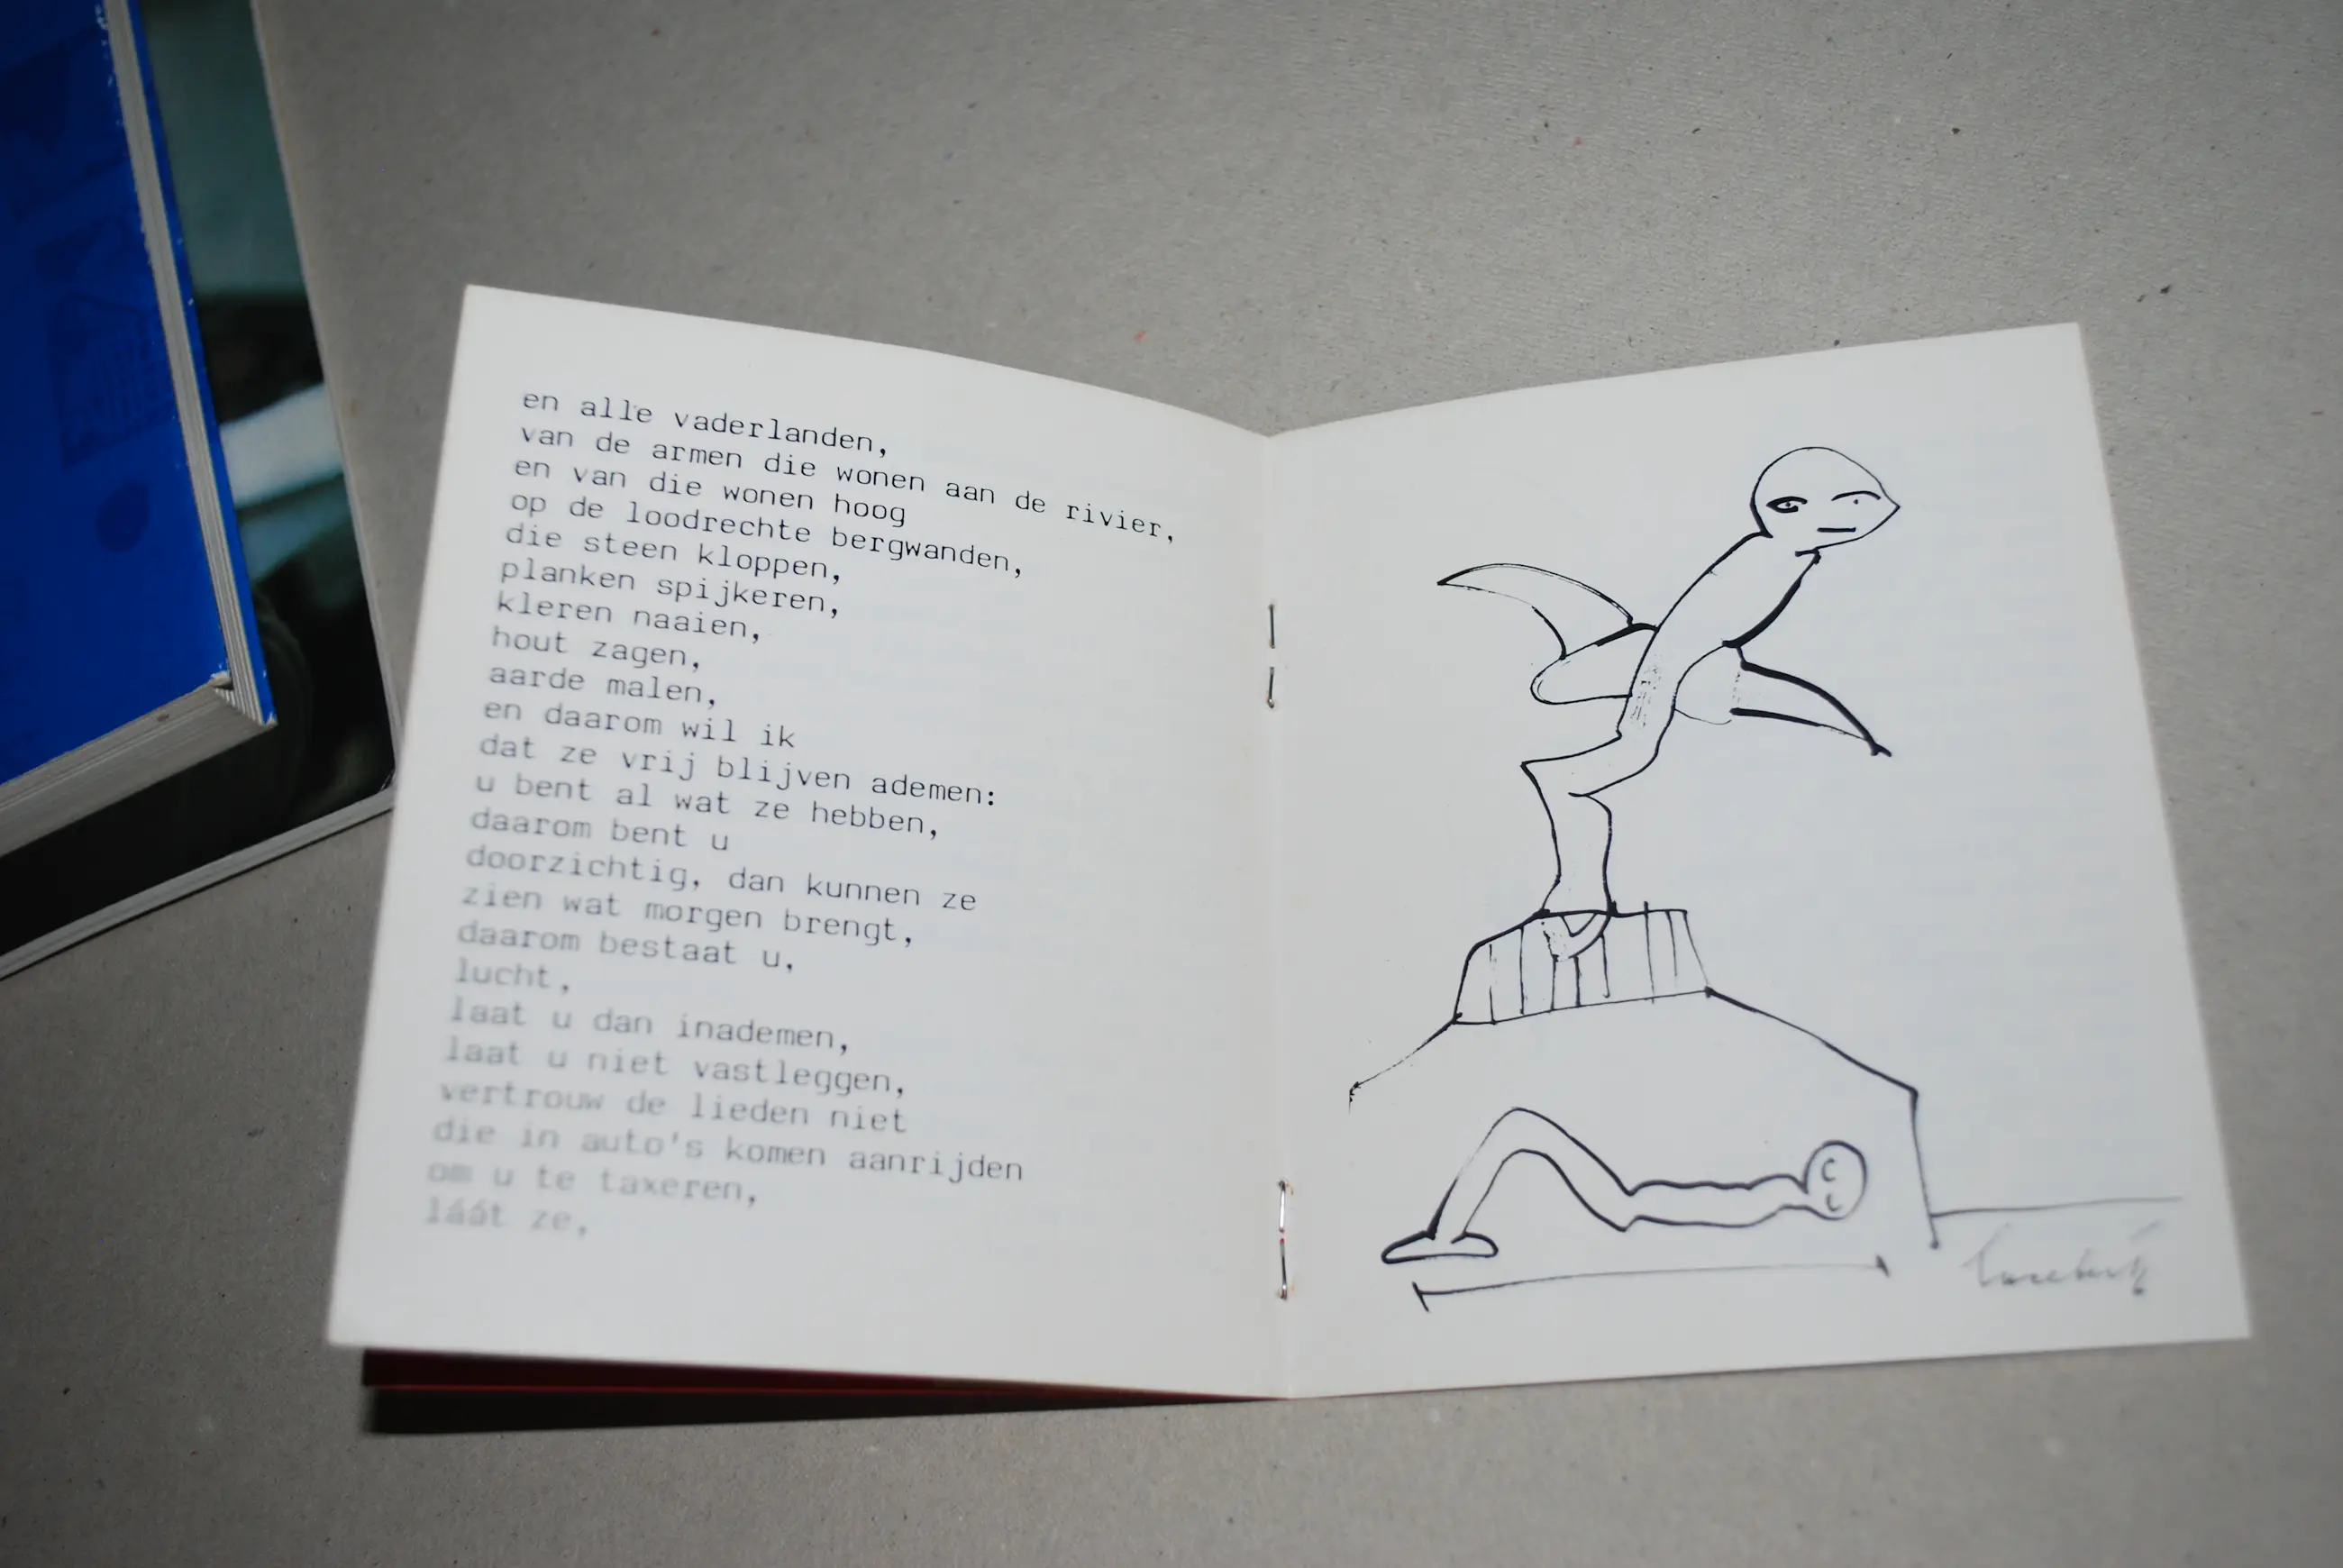 en alle vaderlanden,
van de armen die wonen aan de rivier,
en van die wonen hoog
op de loodrechte bergwanden,
die steen kloppen,
planken spijkeren,
kleren naaien,
hout zagen,
aarde malen,
en daarom wil ik
dat ze vrij blijven ademen:
u bent al wat ze hebben,
daarom bent u
doorzichtig, dan kunnen ze
zien wat morgen brengt,
daarom bestaat u,
lucht,
laat u dan inademen,
laat u niet vastleggen,
vertrouw de lieden niet
die in auto's komen aanrijden
om u te taxeren,
láát ze,